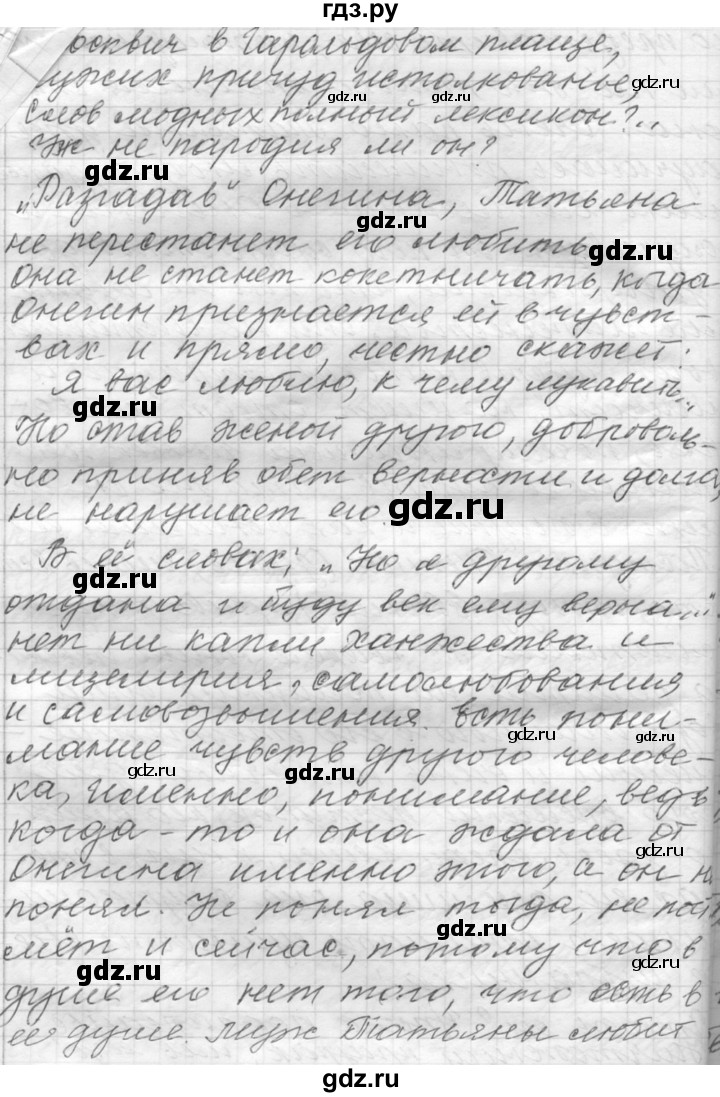 гдз.ру
осквич в Гарольдовом плаще,
ужих причуд истолкованье,
Слов модных полный лексикон?..
Уж не пародия ли он?
„Разгадав" Онегина, Татьяна
не перестанет его любить
она не станет кокетничать, когда
Онегин признается ей в чувст-
вах и прямо, честно скажет:
Я вас люблю, к чему лукавить..
Но став женой другого, доброволь-
но приняв обет верности и долга,
не нарушает его.
В её словах: „Но я другому
отдана и буду век ему верна..."
нет ни капли ханжества и
лицемирия, самолюбования
и самовозвышения. Есть пони-
мание чувств другого челове-
ка, Именно, понимание, ведь
когда-то и она ждала от
Онегина именно этого, а он не
понял. Не понял тогда, не пой
мёт и сейчас, потому что в
душе его нет того, что есть в
её душе. Муж Татьяны любит
gdz.ru